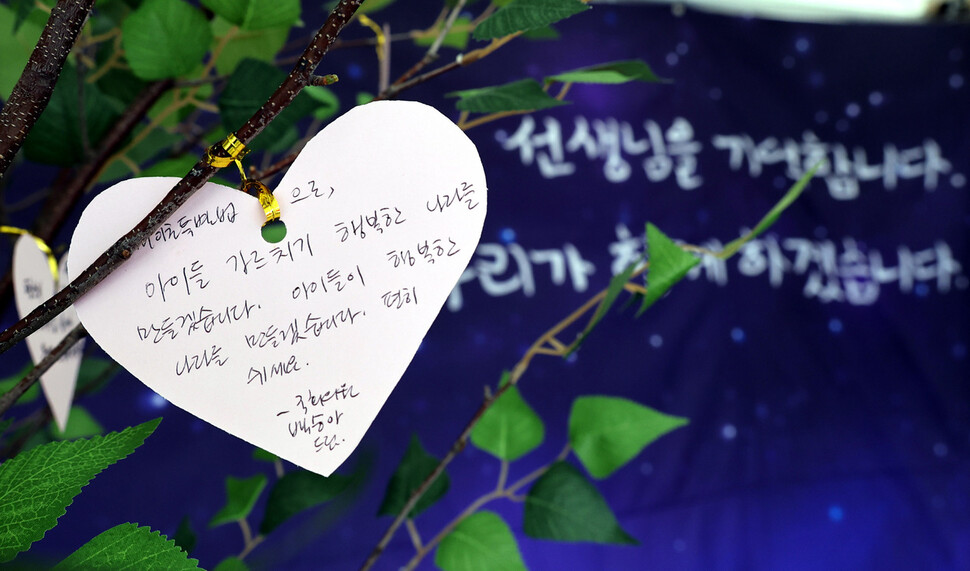 서이초특별법으로,
아이들 가르치기 행복한 나라를
만들겠습니다. 아이들이 행복한
나라를 만들겠습니다. 편히
쉬세요.
- 국회의원
백승아
드림.
선생님을 기억합니다.
우리가 함께 하겠습니다.